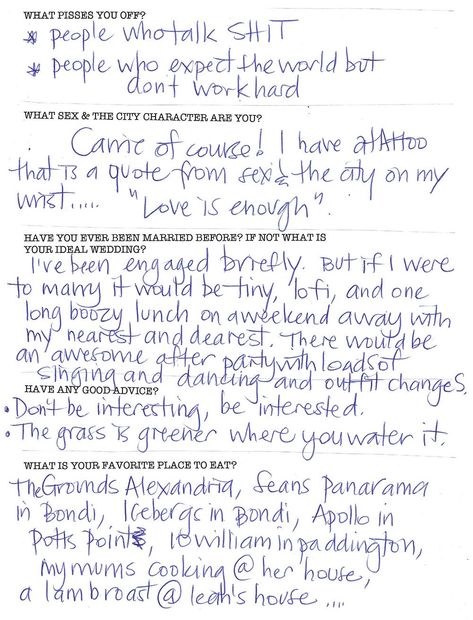 WHAT PISSES YOU OFF?
* people who talk SHIT
* people who expect the world but
don't work hard
WHAT SEX & THE CITY CHARACTER ARE YOU?
Carrie of course! I have a tAttoo
that is a quote from sex & the city on my
wrist..... "Love is enough".
HAVE YOU EVER BEEN MARRIED BEFORE? IF NOT WHAT IS
YOUR IDEAL WEDDING?
I've been engaged briefly. But if I were
to marry it would be tiny, lofi, and one
long boozy lunch on a weekend away with
my nearest and dearest. There would be
an awesome after party with loads of
singing and dancing and outfit changes.
HAVE ANY GOOD ADVICE?
• Don't be interesting, be interested.
• The grass is greener where you water it.
WHAT IS YOUR FAVORITE PLACE TO EAT?
The Grounds Alexandria, Seans Panarama
in Bondi, Icebergs in Bondi, Apollo in
Potts Point, 10 william in paddington,
my mums cooking @ her house,
a lamb roast @ leah's house ....